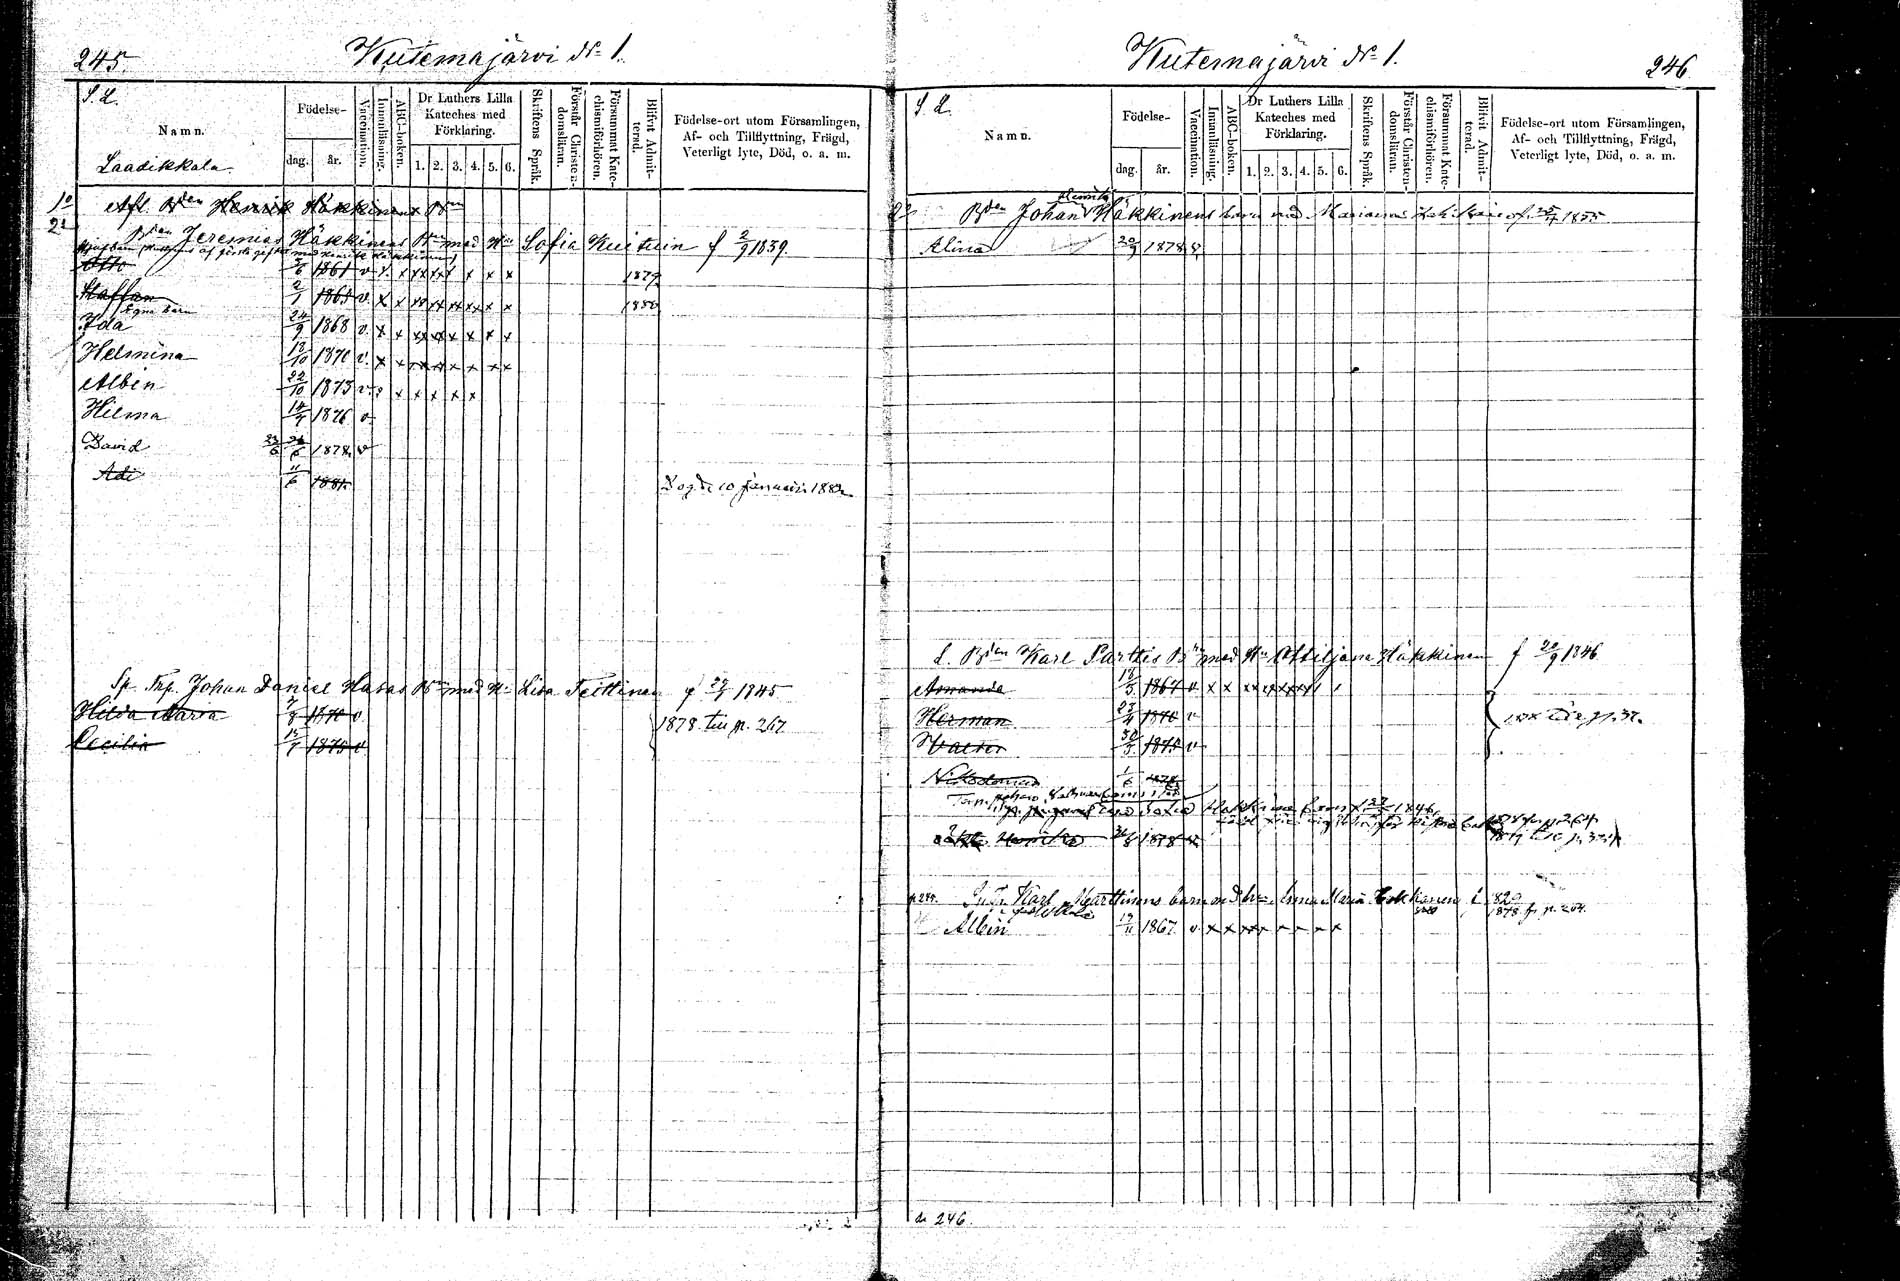 245.
Kutemajärvi No 1.
S. L.
Namn.
Födelse-
dag. år.
Vaccination.
Innanläsning.
ABC-boken.
Dr Luthers Lilla Kateches med Förklaring.
1. 2. 3. 4. 5. 6.
Skriftens Språk.
Förstår Christen-domsläran.
Försummat Kate-chismiförhören.
Blifvit Admit-terad.
Födelse-ort utom Församlingen,
Af- och Tillflyttning, Frägd,
Veterligt lyte, Död, o. a. m.
Laadikkala
1o Afl. Bden Henrik Häkkinens Bn
2o Bden Jeremias Häkkinens Bn med Hu Sofia Kuituin f 2/9 1839.
Otto 2/6 1861 v x x xx xx x x x 1879
Staffan 2/1 1865 v. x x xx xx xx xx x x 1880
Egna barn
Ida 24/9 1868 v. x x xx xx x x x x
Helmina 18/10 1870 v. x x xx xx x x x x
Albin 22/10 1873 v. x x x x x x
Hilma 14/4 1876 v
David 23/6 26/6 1878. v
Adi 11/6 1881. Dog d. 10 Januari 1882
Sp. Trp. Johan Daniel Hasas Bn med Hu Lisa Teittinen f 29/1 1845
Hilda Maria 7/8 1870 v
1878. till p. 267
Cecilia 15/7 1875 v
Kutemajärvi No 1.
246
S. L.
Namn.
Födelse-
dag. år.
Vaccination.
Innanläsning.
ABC-boken.
Dr Luthers Lilla Kateches med Förklaring.
1. 2. 3. 4. 5. 6.
Skriftens Språk.
Förstår Christen-domsläran.
Försummat Kate-chismiförhören.
Blifvit Admit-terad.
Födelse-ort utom Församlingen,
Af- och Tillflyttning, Frägd,
Veterligt lyte, Död, o. a. m.
2o Bden Johan Henriks Häkkinens barn med Marianna f. 25/7 1855
Alina 20/9 1878 v.
L. Bden Karl Parttis Bn med Hu Ottiljana Häkkinen f 20/9 1846
Amanda 18/5 1867 v x x xx xx xx
Herman 23/4 1870 v
Walter 30/5 1875 v
Nikodemus 1/6 1878
1846
Henrika 26/8 1878 v
p. 244. Karl Marttinens barn med Hu Anna Maria f 1820
1878 fr p. 204.
Albin 19/11 1867. v x x xx x x x x
de 246.